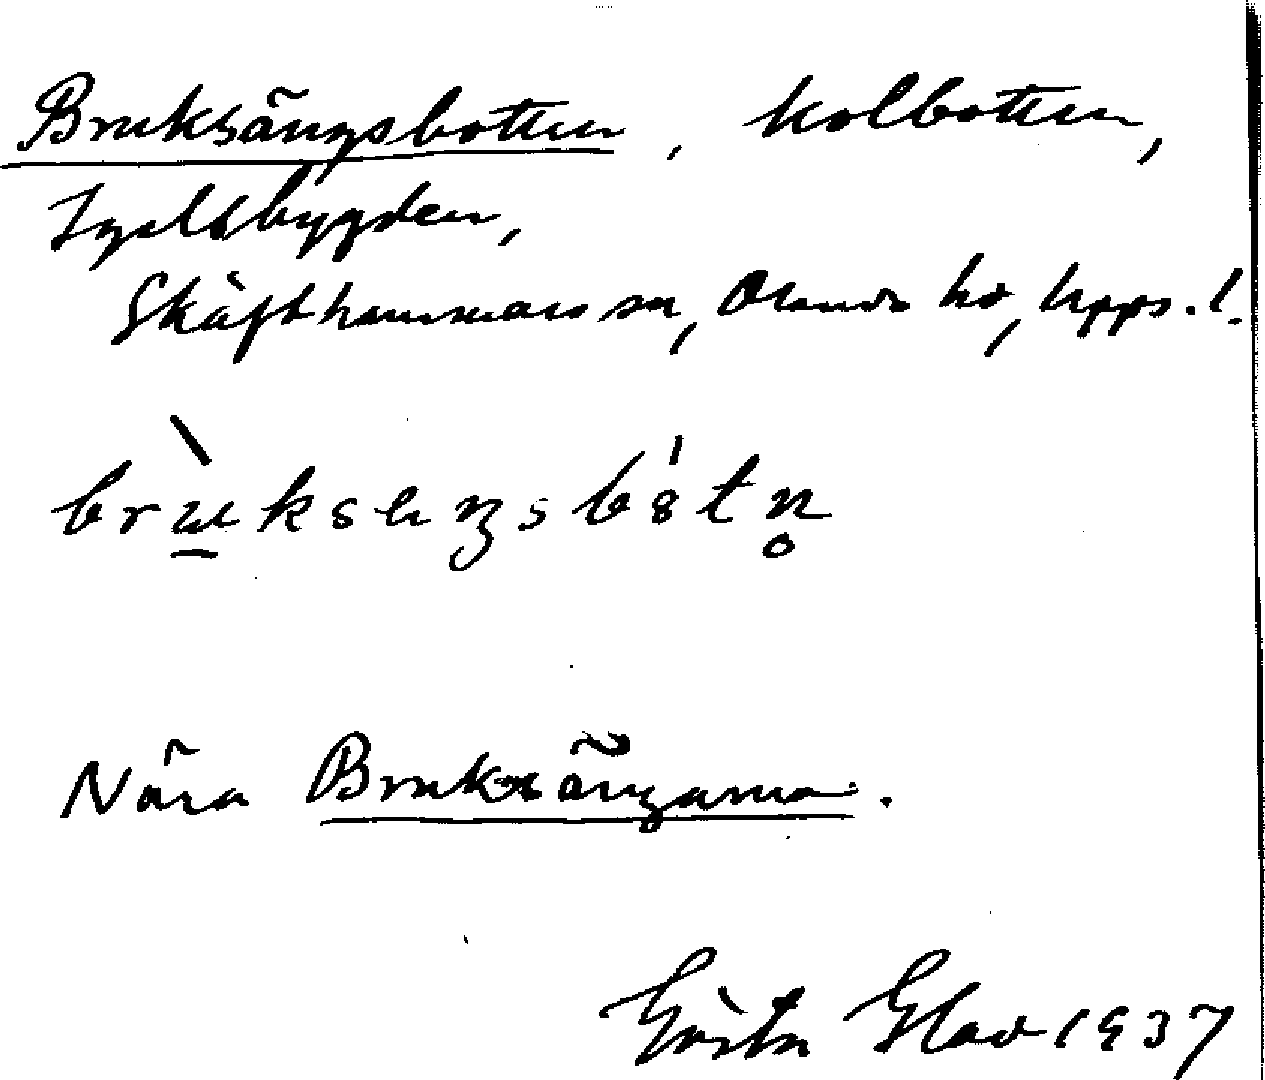 Bruksängsbotten, kolbotten,
Igelsbygden,
Skäfthammars sn, Olands hd, Upps. l.
Nära Bruksängarna.
Gösta Glad 1937